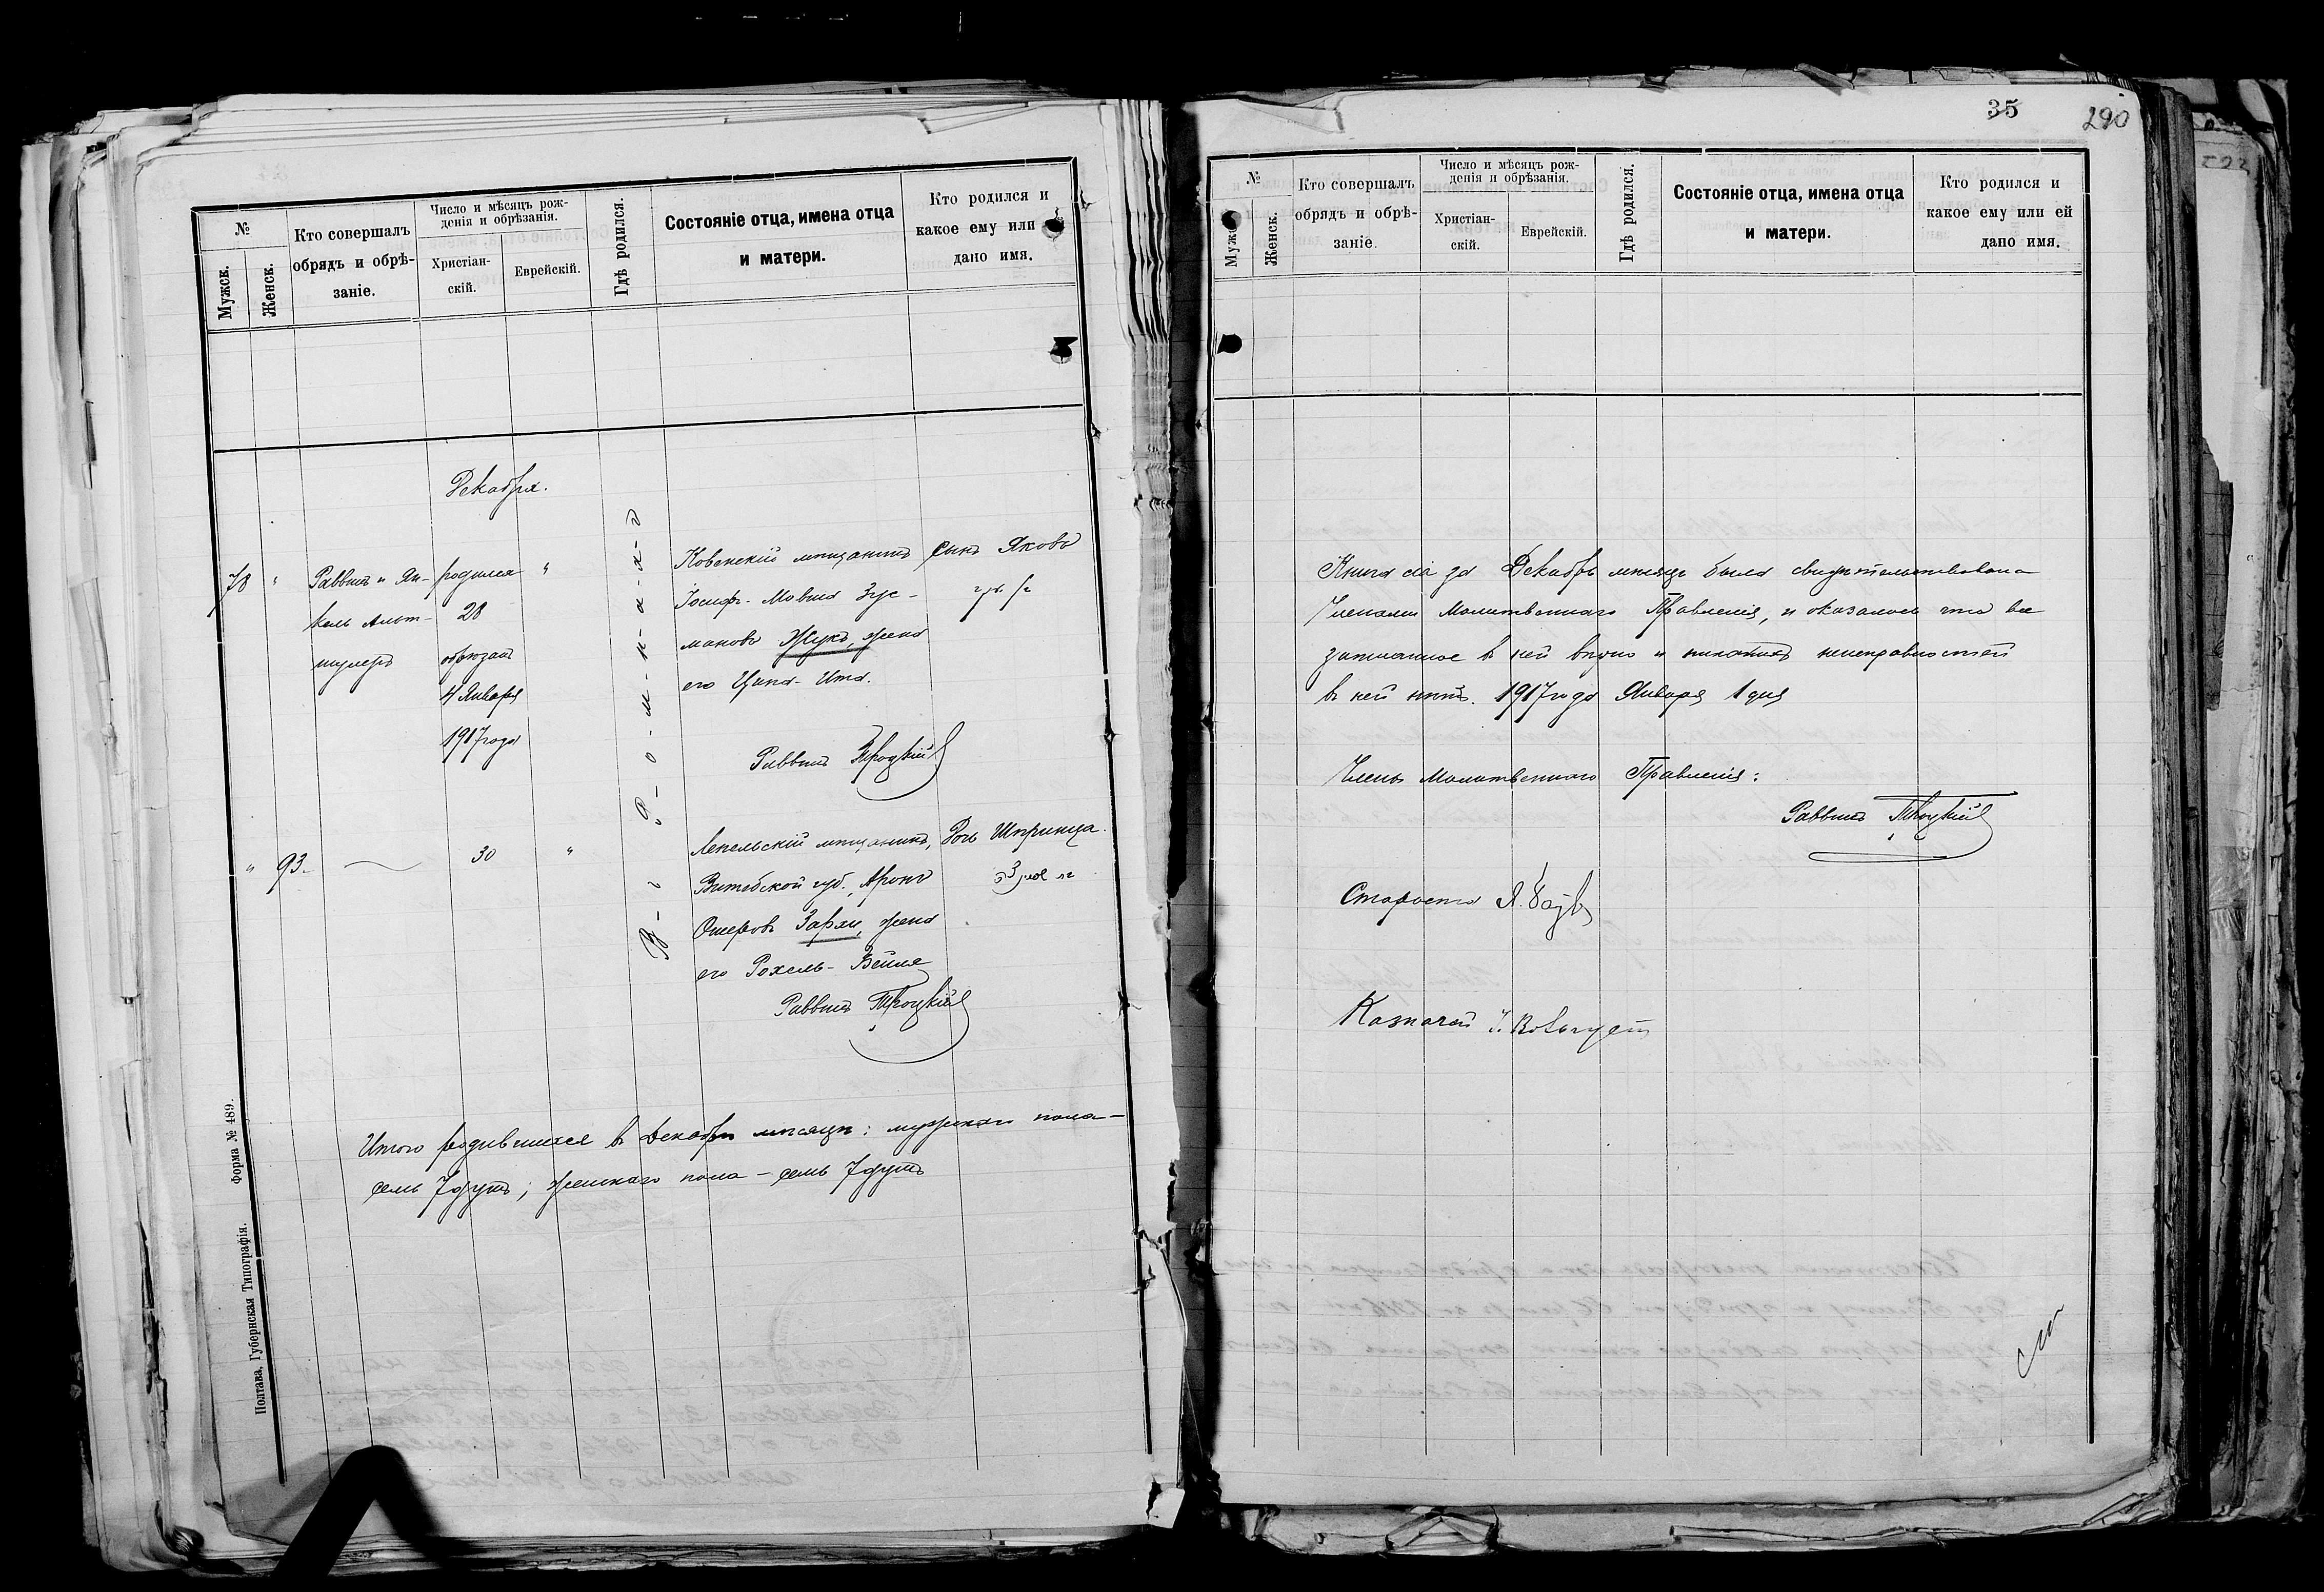 №
Мужск.
Женск.
Кто совершалъ
обрядъ и обрѣ-
заніе.
Число и мѣсяцъ рож-
денія и обрѣзанія.
Христіан-
скій.
Еврейскій.
Гдѣ родился.
Состояніе отца, имена отца
и матери.
Кто родился и
какое ему или
дано имя.
Декабря.
78 " Раввинъ и Ян-
кель Альт-
шулеръ
родился "
28
обрѣзанъ
4 Января
1917 года
В - г - Р - о - м - н - а - х - ъ
Ковенскій мѣщанинъ
Іосифъ - Мовша Зус-
мановъ Жукъ, жена
его Ципа - Ита.
Сынъ Яковъ
Раввинъ Троцкій
" 93. 30 "
Лепельскій мѣщанинъ,
Витебской губ., Аронъ
Ошеровъ Зархи, жена
его Рохель - Бейля
Дочь Шпринца.
Раввинъ Троцкій
Итого родившихся въ Декабрѣ мѣсяцѣ: мужскаго пола -
семь 7 душъ; женскаго пола - семь 7 душъ
Форма № 489.
Полтава, Губернская Типографія.
35
290
№
Мужс
Женск.
Кто совершалъ
обрядъ и обрѣ-
заніе.
Число и мѣсяцъ рож-
денія и обрѣзанія.
Христіан-
скій.
Еврейскій.
Гдѣ родился.
Состояніе отца, имена отца
и матери.
Кто родился и
какое ему или ей
дано имя.
Книга сія за Декабрь мѣсяцъ была свидѣтельствована
Членами Молитвеннаго Правленія, и оказалось что все
записанное въ ней вѣрно и никакихъ неисправностей
въ ней нѣтъ. 1917 года Января 1 дня
Члены Молитвеннаго Правленія:
Раввинъ Троцкій
Староста Я.
Казначей